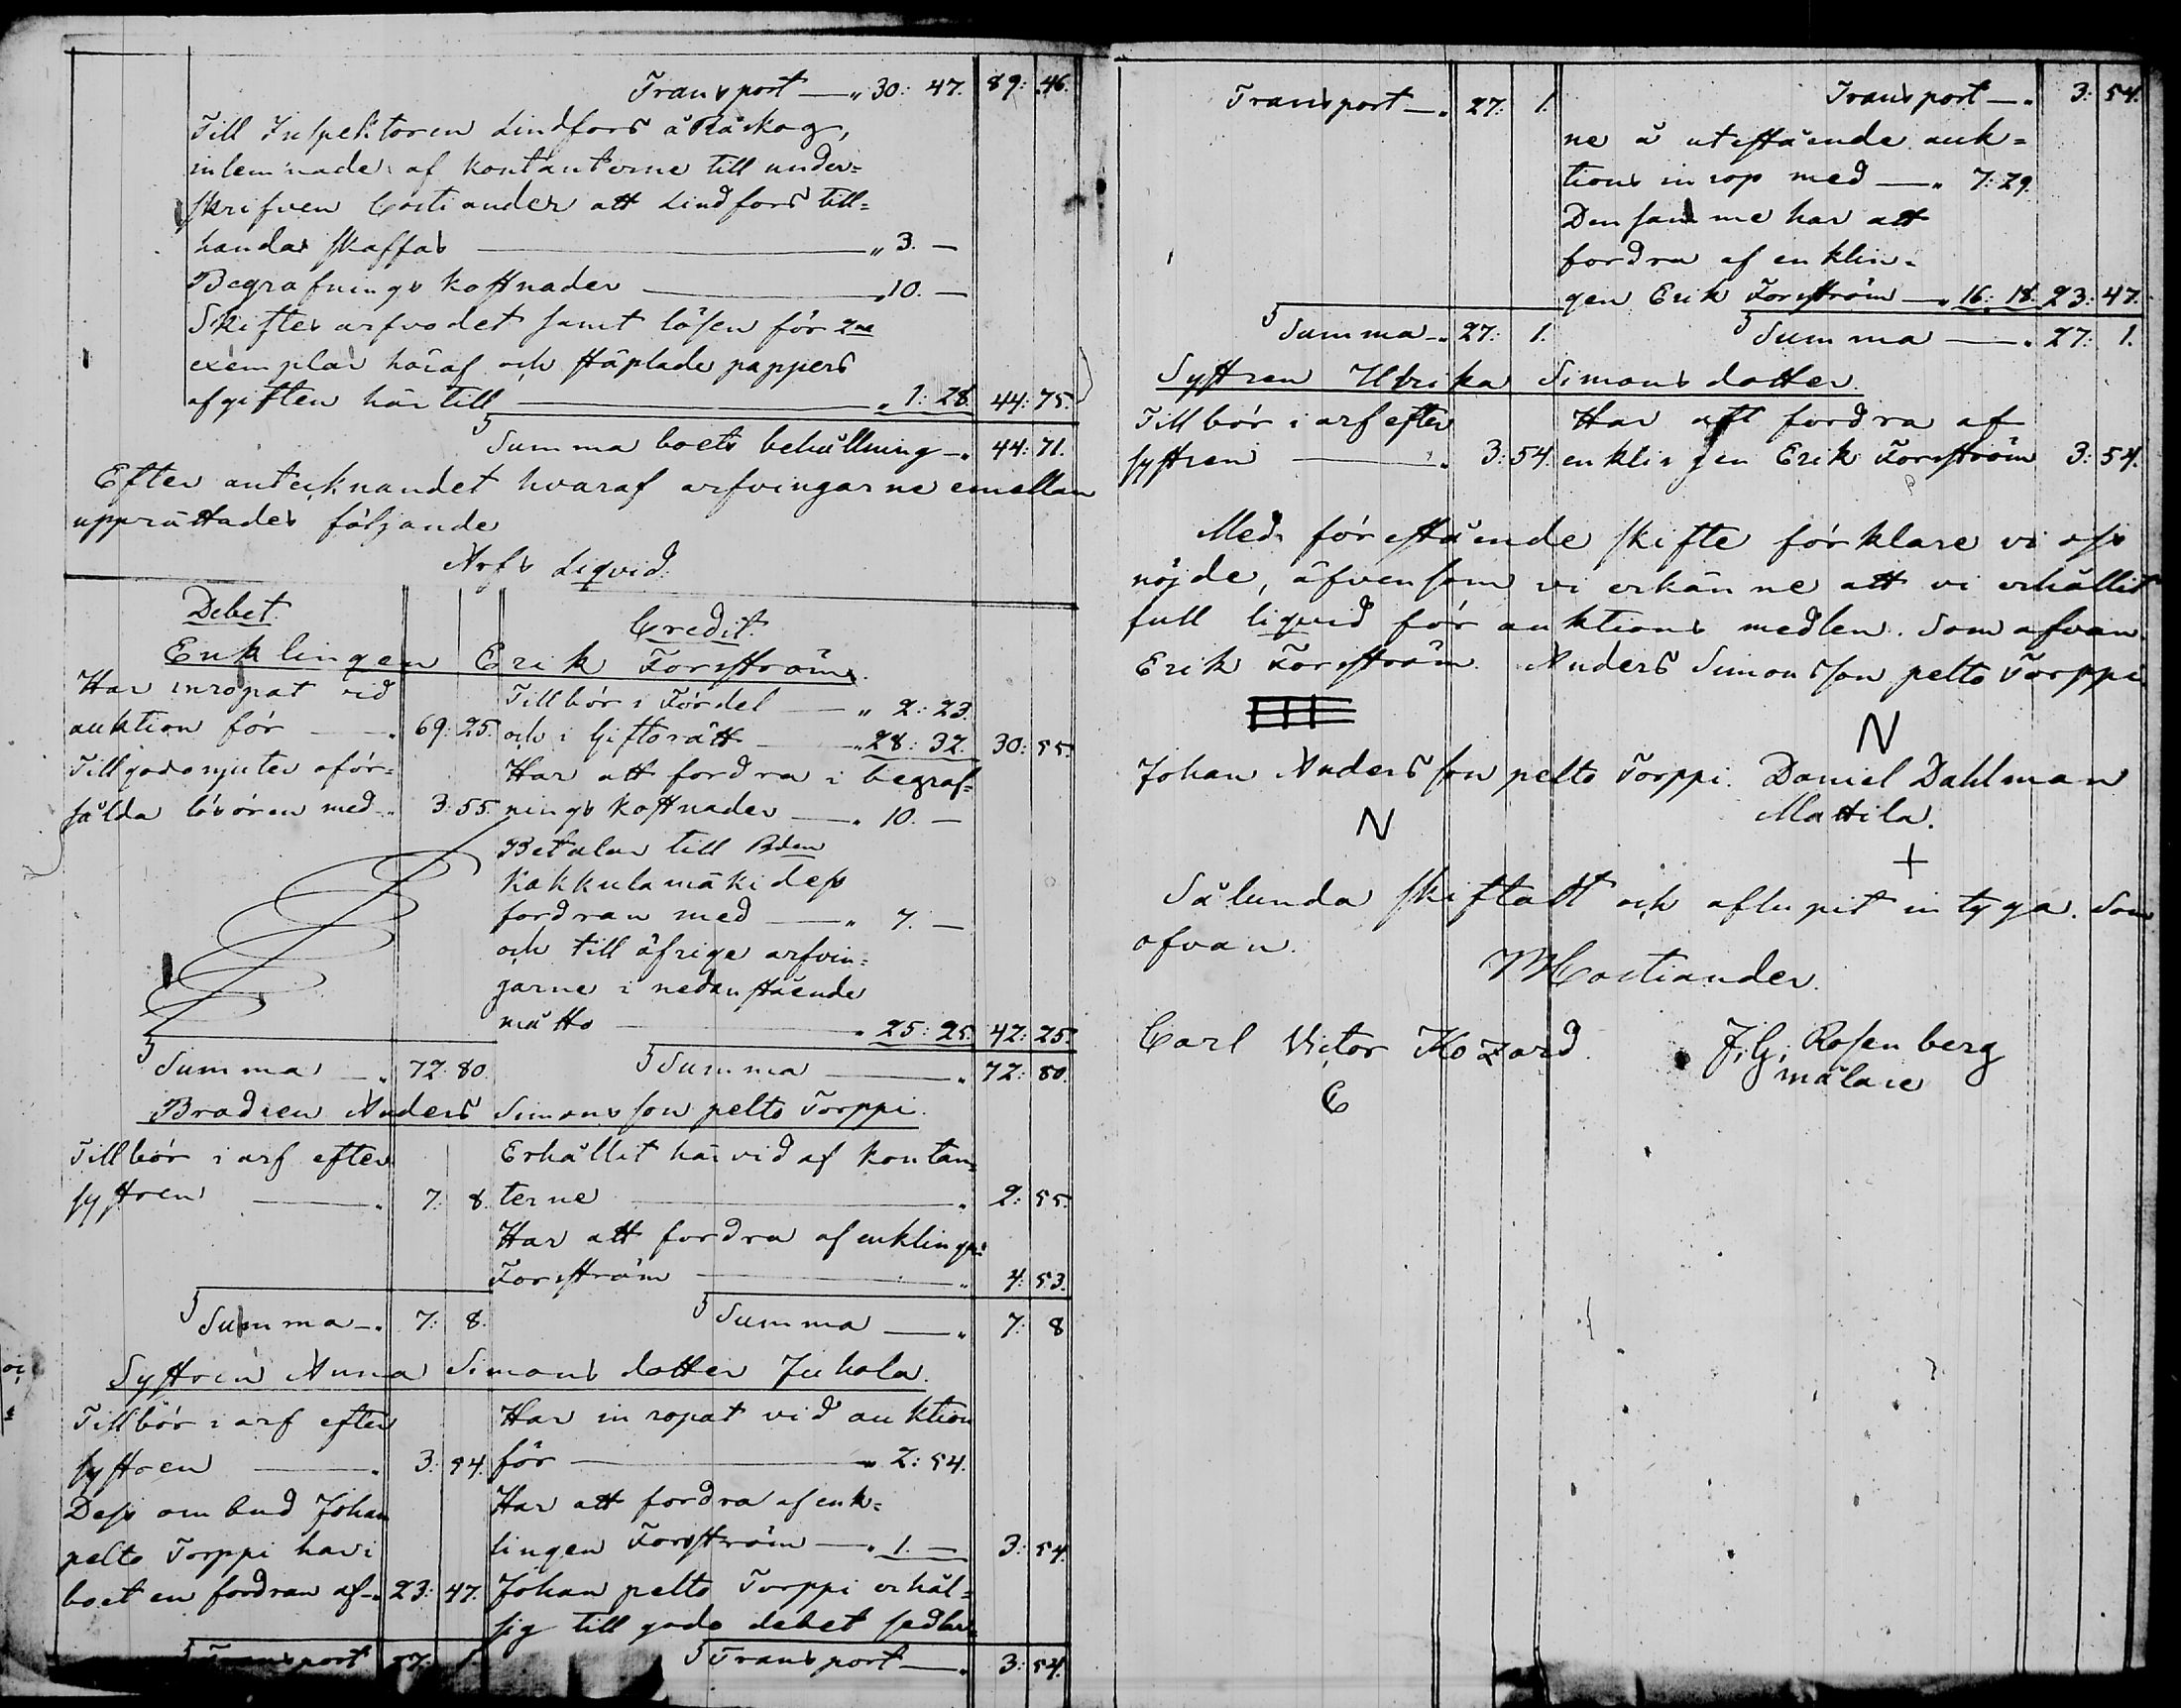 Transport — „ 30: 47. 89: 46.
Till Inspektoren Lindfors å Träskog,
inlemnades af kontanterne till under=
skrifven Costiander att Lindfors till=
handas skaffas — „ 3. —
Begrafnings kostnader — „ 10. —
Skiftes arfvodet samt lösen för 2ne
exemplar häraf och stäplade pappers
afgiften härtill — „ 1: 28. 44: 75.
Summa boets behållning — „ 44: 71.
Efter antecknandet hvaraf arfvingarne emellan
upprättades följande
Arfs Liqvid.
Debet. Credit.
Enklingen Erik Forsström.
Har inropat vid
auktion för — „ 69: 25.
Tillgodonjuter oför=
sålda lösören med „ 3: 55.
Summa — „ 72: 80.
Tillbör i Fördel — „ 2: 23.
och i Giftorätt — „ 28: 32. 30: 55.
Har att fordra i begraf=
nings kostnader — „ 10. —
Betalar till Bden
Kakkulamäki dess
fordran med — „ 7. —
och till öfrige arfvin=
garne i nedanstående
måtto — „ 25: 25. 42: 25.
Summa — „ 72: 80.
Brodren Anders Simonsson pelto Torppi.
Tillbör i arf efter
systren — „ 7: 8.
Summa — „ 7: 8.
Erhållit härvid af kontan=
terne — „ 2: 55.
Har att fordra af enklingen
Forsström — „ 4: 53.
Summa — „ 7: 8
Systren Anna Simonsdotter Juhola.
Tillbör i arf efter
systren — „ 3: 54.
Dess ombud Johan
pelto Torppi har i
boet en fordran af — „ 23: 47.
Transport 27: 1.
Har inropat vid auktion
för — „ 2: 54.
Har att fordra af enk=
lingen Forsström — „ 1. — 3: 54.
Johan pelto Torppi erhål=
sig till godo debet sedlar=
Transport — „ 3: 54.
Transport — „ 27: 1.
Summa — „ 27: 1.
Transport — „ 3: 54.
ne å utestående auk=
tions inrop med — „ 7: 29.
Densamme har att
fordra af enklin=
gen Erik Forsström — „ 16: 18. 23: 47.
Summa — „ 27: 1.
Systren Ulrika Simonsdotter.
Tillbör i arf efter
systren — „ 3: 54.
Har att fordra af
enklingen Erik Forsström 3: 54.
Med förestående skifte förklare vi oss
nöjde, äfvensom vi erkänne att vi erhållit
full liqvid för auktions medlen. Som ofvan.
Erik Forsström. Anders Simonsson pelto Torppi.
N
Johan Andersson pelto Torppi. Daniel Dahlman
N Mattila.
+
Sålunda skiftadt och aflupit intyga. Som
ofvan.
M Costiander.
Carl Victor Kozard. J. G. Rosenberg
C målare